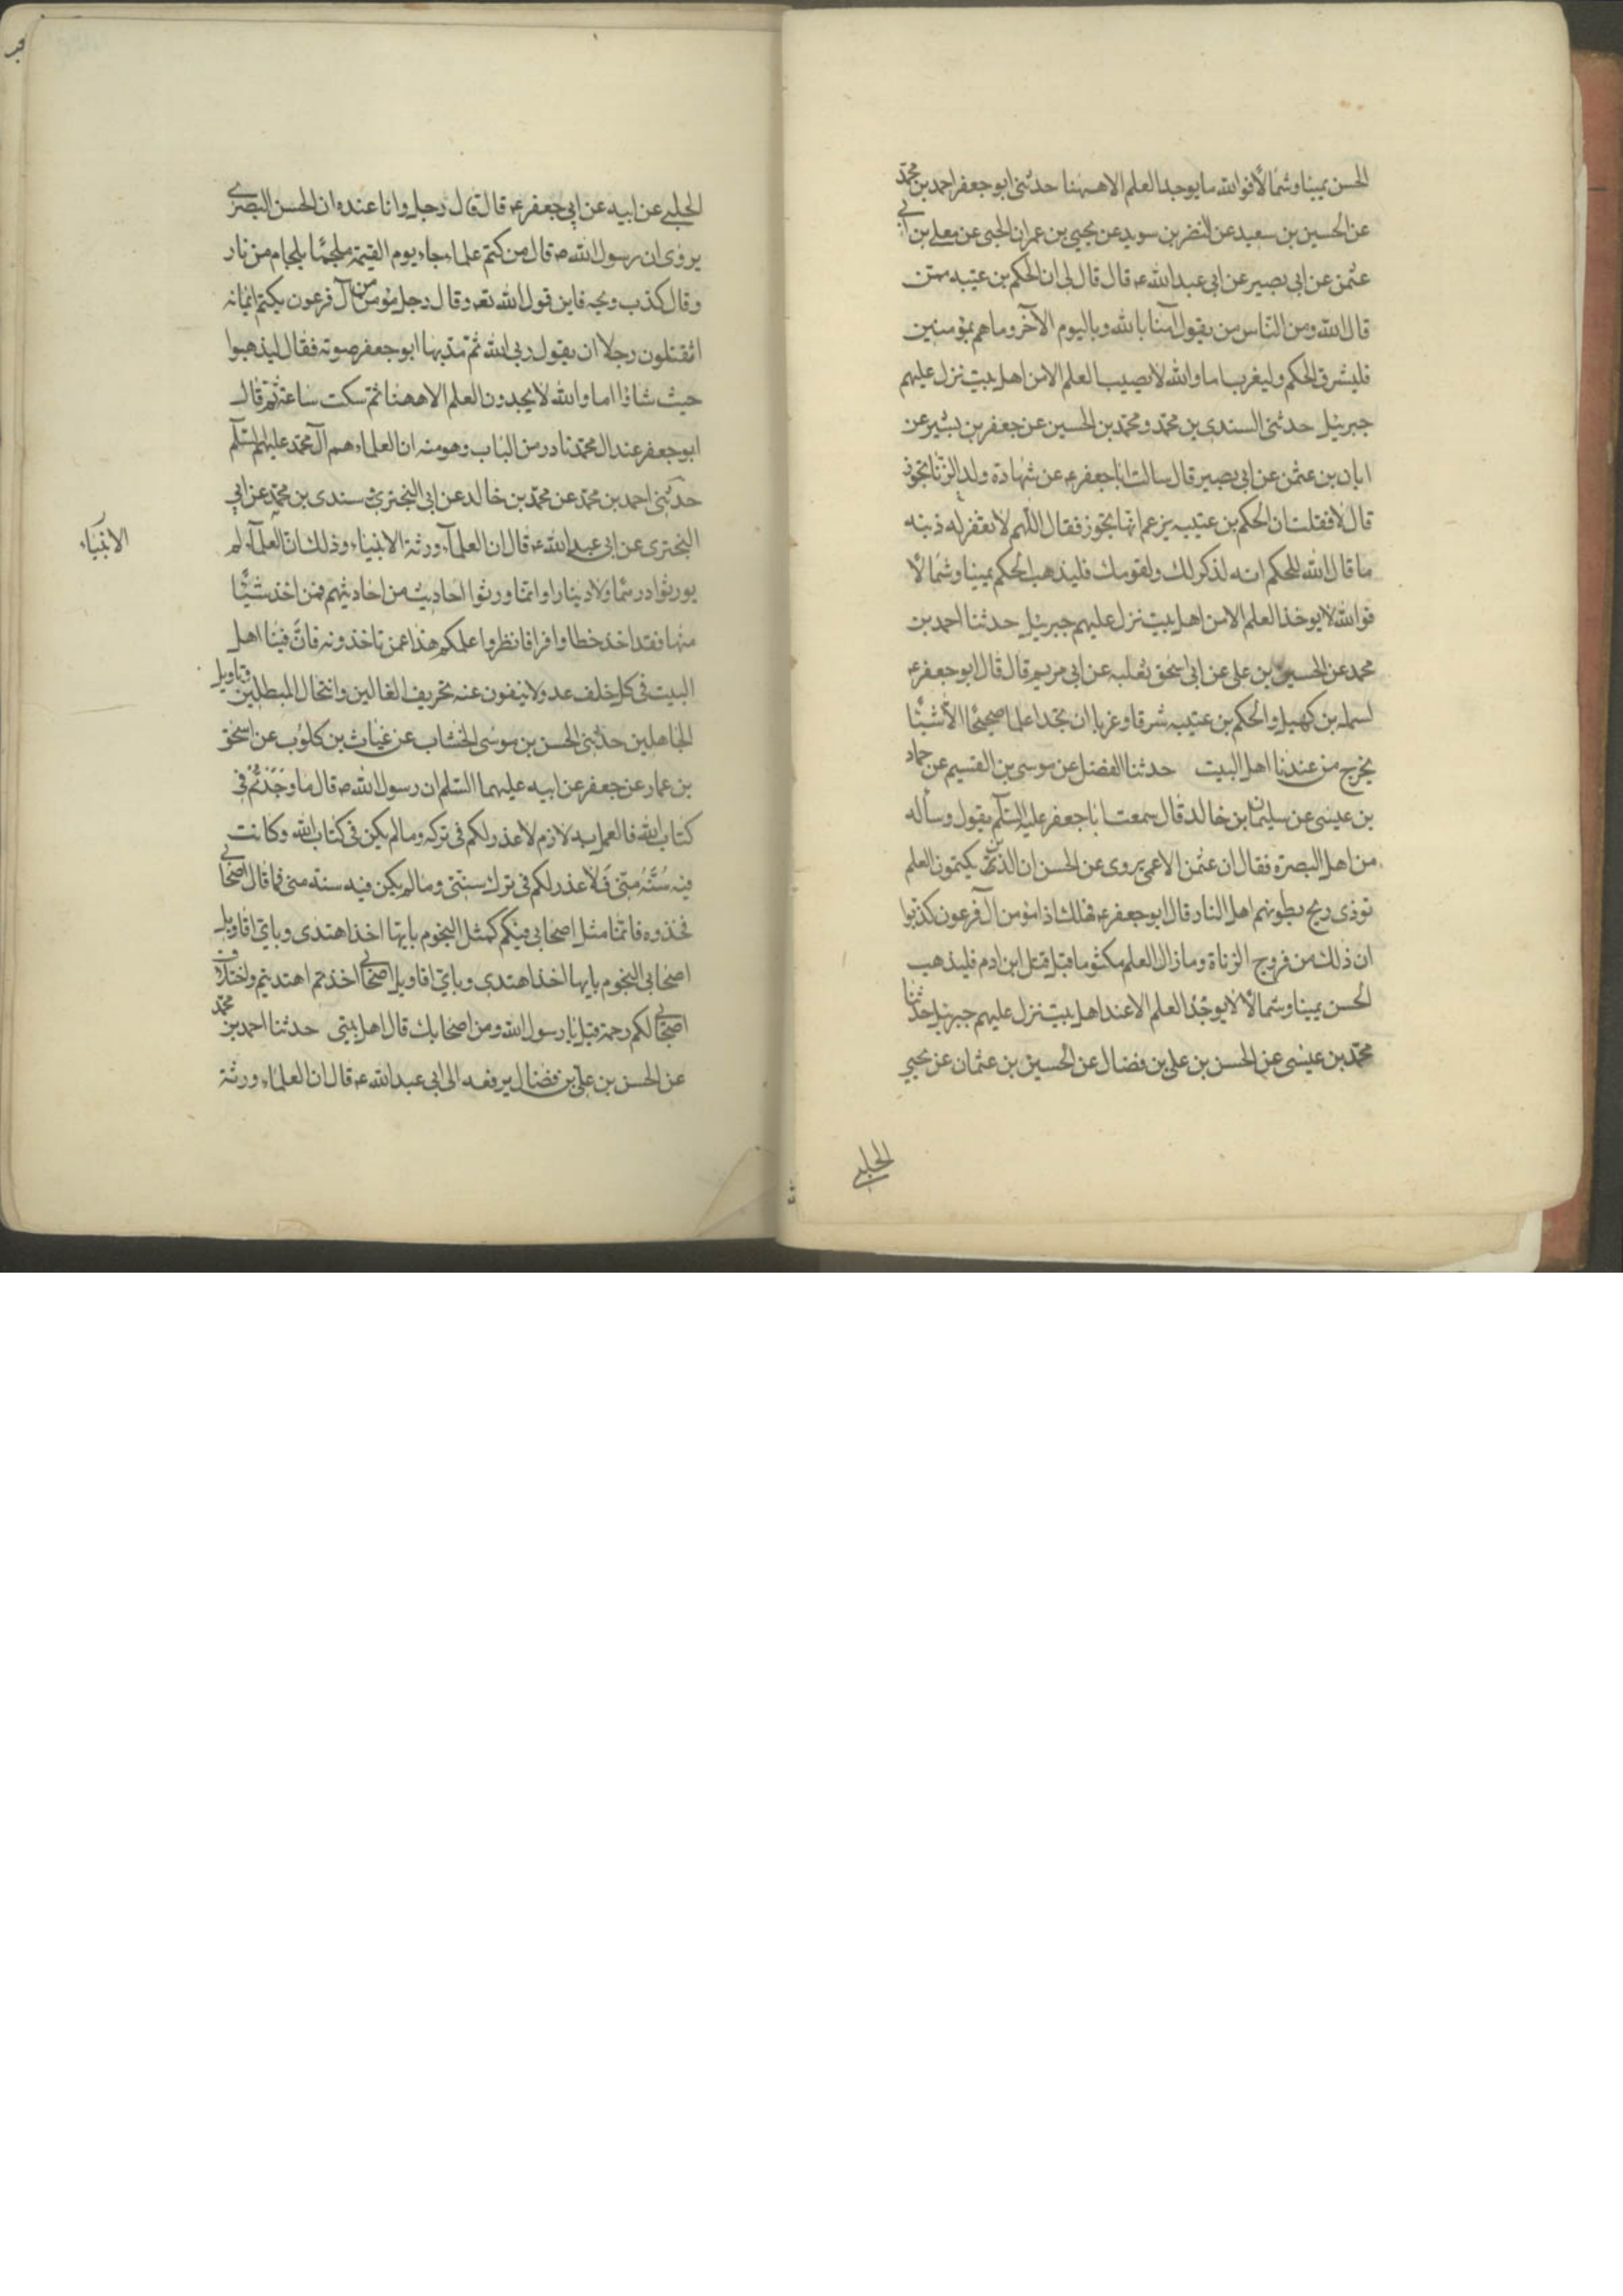 الحسن يمينا وشمالا فوالله ما يوجد العلم الا ههنا حدثنى ابو جعفر احمد بن محمد
عن الحسين بن سعيد عن النضر بن سويد عن يحيى بن عمران الحبى عن معلى بن ابى
عثمن عن ابى بصير عن ابى عبد الله ع قال قال لى ان الحكم بن عتيبه ممن
قال الله ومن الناس من يقول آمنا بالله وباليوم الآخر وما هم بمؤمنين
فليشرق الحكم وليغرب اما والله لا يصيب العلم الا من اهل بيت نزل عليهم
جبرئيل حدثنى السندى بن محمد ومحمد بن الحسين عن جعفر بن بشير عن
ابان بن عثمن عن ابى بصير قال سالت ابا جعفر ع عن شهادة ولد الزنا تجوز
قال لا فقلت ان الحكم بن عتيبه يزعم انها تجوز فقال اللهم لا تغفر له ذنبه
ما قال الله للحكم انه لذكر لك ولقومك فليذهب الحكم يمينا وشمالا
فوالله لا يوخذ العلم الا من اهل بيت نزل عليهم جبرئيل حدثنا احمد بن
محمد عن الحسين بن على عن ابى اسحق ثعلبه عن ابى مريم قال قال ابو جعفر ع
لسمله بن كهيل والحكم بن عتيبه شرقا وغربا لن تجدا علما صحيحا الا شيئا
يخرج من عندنا اهل البيت حدثنا الفضل عن موسى بن القسيم عن حماد
بن عيسى عن سليمان بن خالد قال سمعت ابا جعفر عليه السلم يقول وسأله
من اهل البصرة فقال ان عثمن الاعمى يروى عن الحسن ان الذين يكتمون العلم
توذى ريح بطونهم اهل النار قال ابو جعفر ع فهلك اذا مؤمن آل فرعون كذبوا
ان ذلك من فروج الزناة وما زال العلم مكتوما قبل قتل ابن ادم فليذهب
الحسن يمينا وشمالا لا يوجد العلم الا عند اهل بيت نزل عليهم جبرئيل حدثنا
محمد بن عيسى عن الحسن بن على بن فضال عن الحسين بن عثمان عن يحيى
الحلبى
الحلبى عن ابيه عن ابى جعفر ع قال قال رجل وانا عنده ان الحسن البصرى
يروى ان رسول الله ص قال من كتم علما جاء يوم القيمة ملجما بلجام من نار
وقال كذب ويحه فاين قول الله تعه وقال رجل مؤمن من آل فرعون يكتم ايمانه
اتقتلون رجلا ان يقول ربى الله ثم مد بها ابو جعفر صوته فقال ليذهبوا
حيث شاؤا اما والله لا يجدون العلم الا ههنا ثم سكت ساعة ثم قال
ابو جعفر عند ال محمد نادر من الباب وهو منه ان العلماء هم آل محمد عليهم السلم
حدثنى احمد بن محمد عن محمد بن خالد عن ابى البخترى سندى بن محمد عن ابى
البخترى عن ابى عبد الله ع قال ان العلمآء ورثة الانبياء وذلك ان العلمآء لم
يورثوا درهما ولا دينارا وانما ورثوا احاديث من احاديثهم فمن اخذ شيئا
منها فقد اخذ حظا وافرا فانظروا علمكم هذا عمن تاخذونه فان فينا اهل
البيت فى كل خلف عدولا ينفون عنه تحريف الغالين وانتحال المبطلين وتاويل
الجاهلين حدثنى الحسن بن موسى الخشاب عن غياث بن كلوب عن اسحق
بن عمار عن جعفر عن ابيه عليهما السلم ان رسول الله ص قال ما وجدتم فى
كتاب الله فالعمل به لازم لا عذر لكم فى تركه وما لم يكن فى كتاب الله وكانت
فيه سنة منى فلا عذر لكم فى ترك سنتى وما لم يكن فيه سنة منى فما قال اصحابى
فخذوه فانما مثل اصحابى فيكم كمثل النجوم بايها اخذ اهتدى وباى اقاويل
اصحابى النجوم بايها اخذ اهتدى وباى اقاويل اصحابى اخذتم اهتديتم واختلاف
اصحابى لكم رحمة قيل يا رسول الله ومن اصحابك قال اهل بيتى حدثنا احمد بن محمد
عن الحسن بن على بن فضال يرفعه الى ابى عبد الله ع قال ان العلماء ورثة
الانبياء